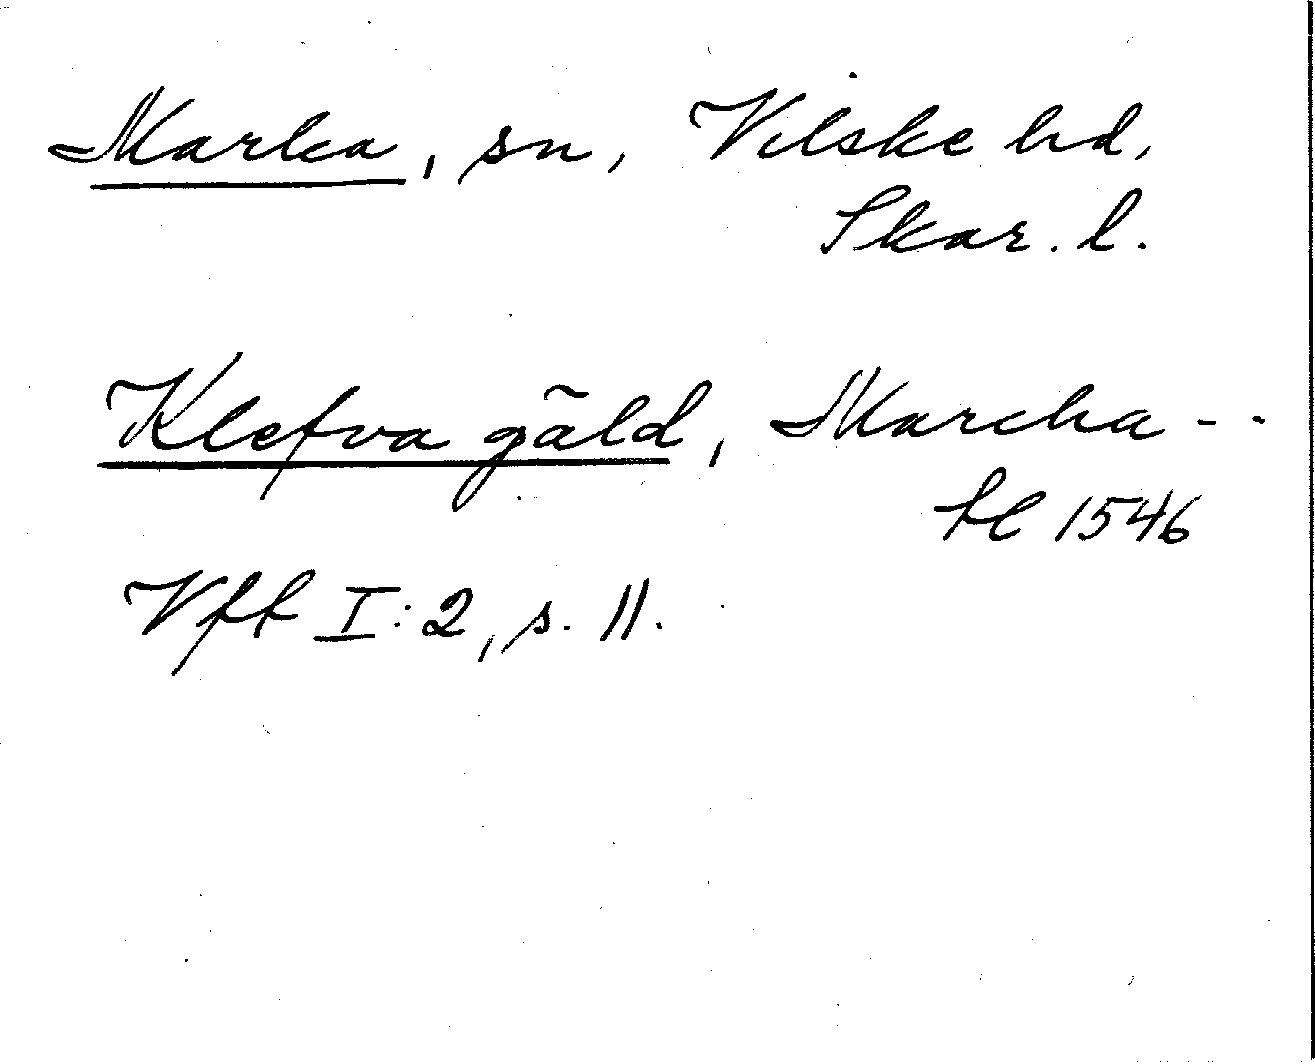 Marka, sn, Vilske hd,
Skar. l.
Klefva gäld, Marcha --
hl 1546
Vff I:2, s. 11.